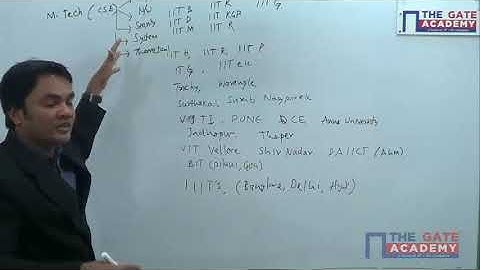 M. Tech (CSE) H/W IIT B IIT K IIT G
IIT D IIT KGP
System IIT M IIT K
Theoretical IIT H, IIT R, IIT P
Trichy, Warangle
Surthakal Surat Nagpur
VJTI. PUNE DCE Anna University
Jadhavpur Thaper
VIT Vellore Shiv Nadar DAIICT (Ahm)
BIT (Pilani, Goa)
IIIT's, (Banglore, Delhi, Hyd)
THE GATE
ACADEMY
THE GATE
ACADEMY